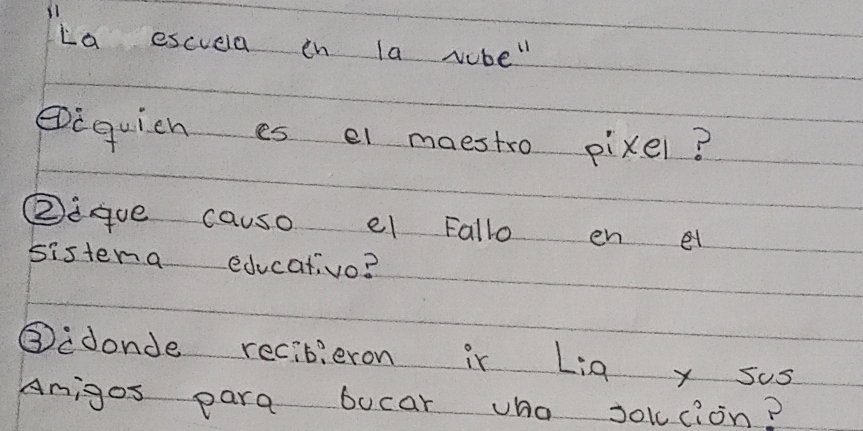 "La escuela en la Nube"
①¿quien es el maestro pixel?
②¿que causo el Fallo en el
sistema educativo?
③¿donde recibieron ir Lia y sus
Amigos para bucar una solución?